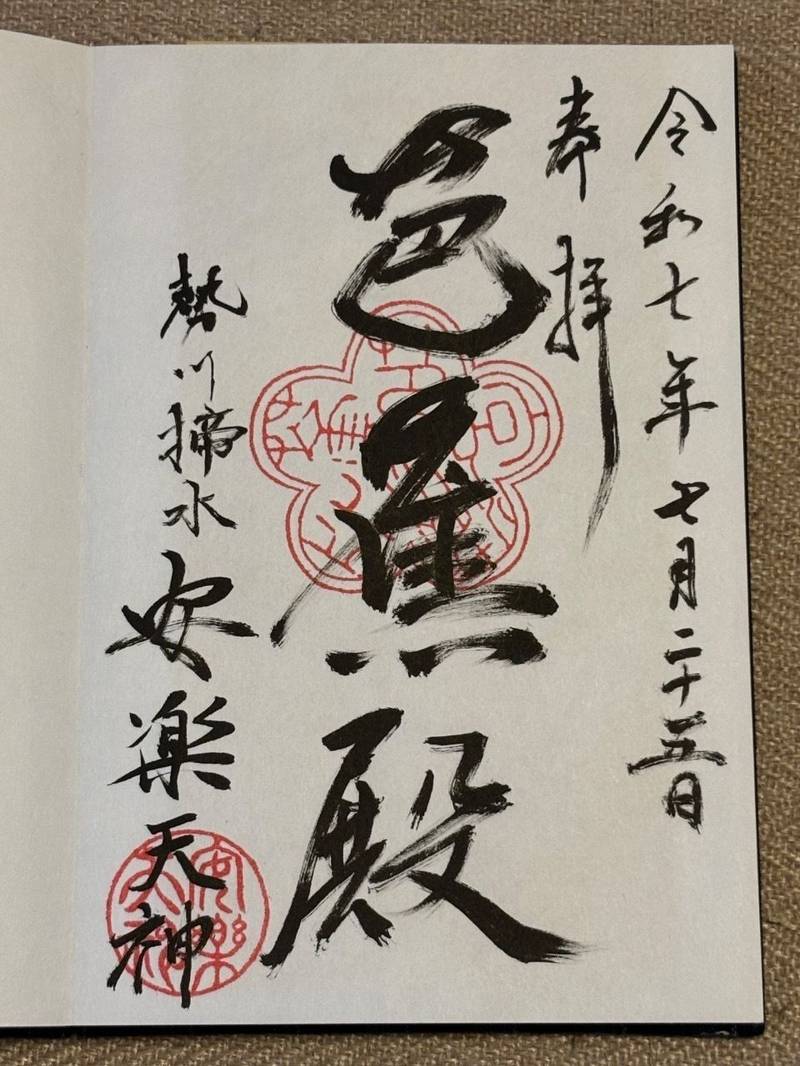 令和七年七月二十五日
奉拝
芭蕉殿
勢川 水 安楽天神
安樂天神